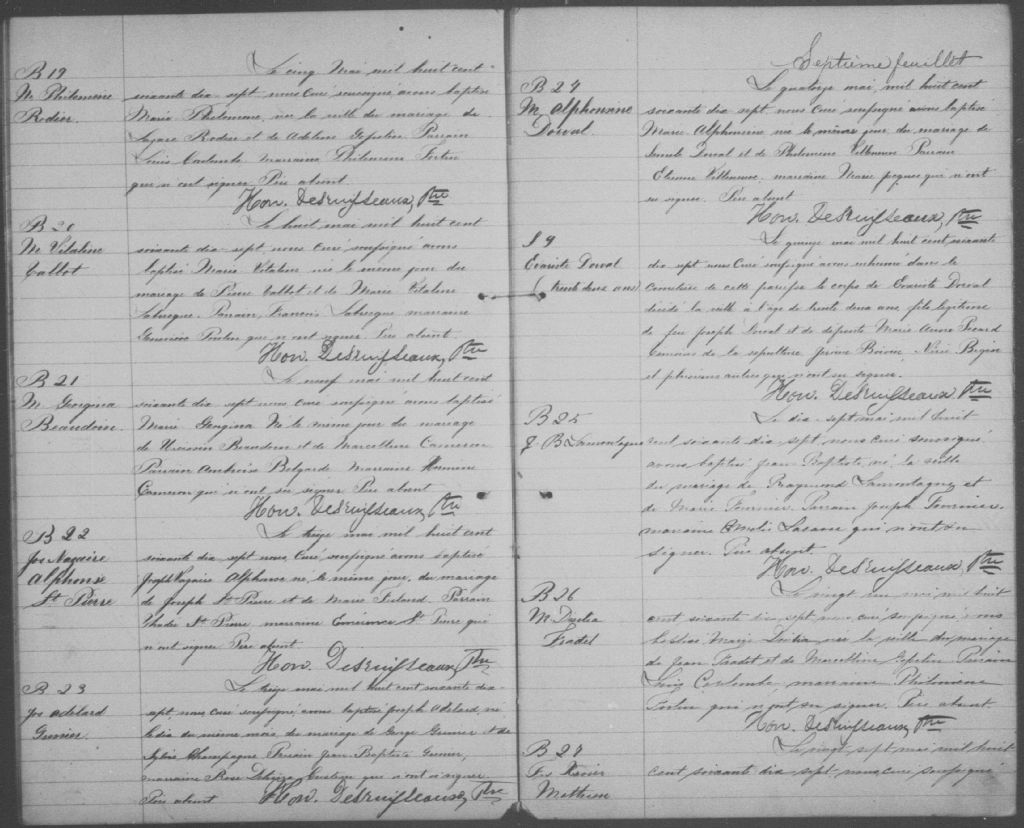 B 19
M Philomene
Rodier.
Le cinq Mai mil huit cent
soixante dix sept nous Curé soussigné avons baptisé
Marie Philomene, née la veille du mariage de
Lazare Rodier et de Adeline Parrain
Louis Marraine Philomene Fortin
qui n'ont signer Père absent.
Hon. Desruisseaux, Ptre
B 20
M Vitaline
Callot
Le huit mai mil huit cent
soixante dix sept nous Curé soussigné avons
baptisé Marie Vitaline née le même jour du
mariage de Pierre Callot et de Marie Vitaline
Labrecque. Parrain, Francois Labrecque marraine
Genevieve qui n'ont signer Père absent.
Hon. Desruisseaux, Ptre
B 21
M. Georgina
Beaudoin.
Le neuf mai mil huit cent
soixante dix sept nous Curé soussigné avons baptisé
Marie Georgina Né le même jour du mariage
de Beaudoin et de Marcelline Cameron
Parrain Ambroise Belgarde Marraine
Cameron qui n'ont su signer Père absent
Hon. Desruisseaux, Ptre
B 22
Jos Nazaire
Alphonse
St Pierre
Le treize mai mil huit cent
soixante dix sept nous, Curé soussigné avons baptisé
Joseph Nazaire Alphonse né le même jour, du mariage
de Joseph St Pierre et de Marie Parrain
St Pierre, marraine St Pierre qui
n'ont signer Père absent
Hon. Desruisseaux, Ptre
B 23
Jos Adelard
Grenier.
Le treize mai mil huit cent soixante dix
sept, nous, curé soussigné, avons baptisé Joseph Adelard, né
le dix du même mois, du mariage de George Grenier et de
Sylvie Champagne Parrain Jean Baptiste Grenier,
marraine Rose qui n'ont su signer.
Père absent Hon. Desruisseaux, Ptre
Septième feuillet
B 24
M, Alphonsine
Dorval.
Le quatorze mai, mil huit cent
soixante dix sept, nous Curé soussigné avons baptisé
Marie Alphonsine née le même jour, du mariage de
Dorval et de Philomene Villeneuve Parrain
Etienne Villeneuve, marraine Marie qui n'ont
su signer. Père absent
Hon. Desruisseaux, Ptre
S 9
Evariste Dorval
(trente deux ans)
Le quinze mai mil huit cent soixante
dix sept nous Curé soussigné avons inhumé dans le
Cimetière de cette paroisse le corps de Evariste Dorval
décédé la veille à l'âge de trente deux ans, fils légitime
de feu Joseph Dorval et de défunte Marie Anne Picard
témoins de la sépulture Boivin, Begin
et plusieurs autres qui n'ont su signer.
Hon. Desruisseaux Ptre
B 25
J. B Lamontagne
Le dix-sept mai mil huit
cent soixante dix sept, nous curé soussigné
avons baptisé Jean Baptiste, né, la veille
du mariage de Raymond Lamontagne et
de Marie Fournier. Parrain Joseph Fournier
marraine qui n'ont su
signer. Père absent.
Hon. Desruisseaux, Ptre
B 26
M.
Fradet
Le vingt un mai mil huit
cent soixante dix sept nous curé soussigné avons
baptisé Marie née la veille du mariage
de Jean Fradet et de Marcelline Parrain
marraine Philomene
Fortin qui n'ont su signer. Père absent.
Hon. Desruisseaux Ptre
B 27
Frs Xavier
Mathieu
Le vingt sept mai mil huit
cent soixante dix sept nous curé soussigné